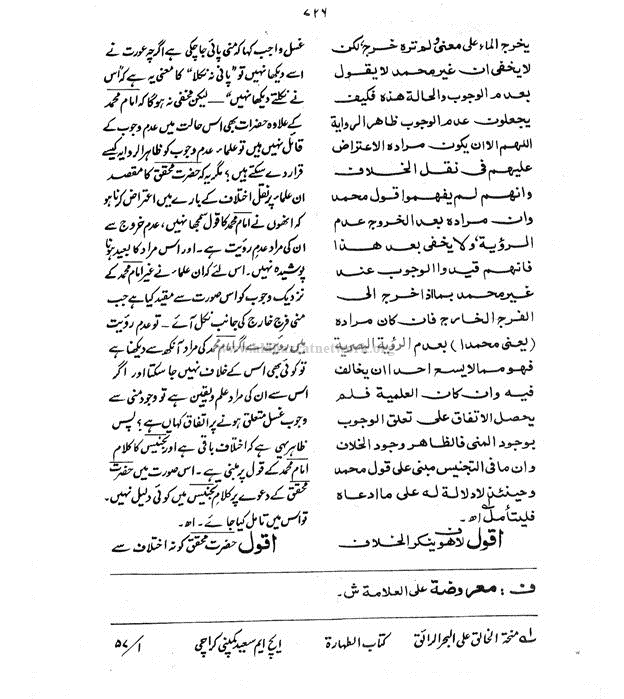 ۷۲۶
یخرج الماء علی معنی ولم ترہ خرج لکن
لایخفی ان غیر محمد لا یقول
بعدم الوجوب والحالة هذه فکیف
یجعلون عدم الوجوب ظاهر الروایة
اللهم الا ان یکون مرادہ الاعتراض
علیهم فی نقل الخلاف
وانهم لم یفهموا قول محمد
وان مرادہ بعدم الخروج عدم
الرؤیة، ولا یخفی بعد هذا
فانهم قیدوا الوجوب عند
غیر محمد بما اذا خرج الی
الفرج الخارج فان کان مرادہ
(یعنی محمدا) بعدم الرؤیة البصریة
فهو مما لا یسع احدا ان یخالف
فیه وان کان العلمیة فلم
یحصل الاتفاق علی تعلق الوجوب
بوجود المنی فالظاهر وجود الخلاف
وان ما فی التجنیس مبنی علی قول محمد
وحینئذ لا دلالة له علی ما ادعاه
فلیتأمل اھ۔
اقول لا هو ینکر الخلاف
غسل واجب کہا کہ منی پائی جاچکی ہے اگرچہ عورت نے
اسے دیکھا نہیں تو "پانی نہ نکلا" کا معنی یہ ہے کہ اُس
نے نکلتے دیکھا نہیں"— لیکن مخفی نہ ہوگا کہ امام محمد
کے علاوہ حضرات بھی اس حالت میں عدم وجوب کے
قائل نہیں ہیں تو علماء عدم وجوب کو ظاہر الروایہ کیسے
قرار دے سکتے ہیں؟ مگر یہ کہ حضرت محقق کا مقصد
ان علماء پر نقل اختلاف کے بارے میں اعتراض کرنا ہو
کہ انھوں نے امام محمد کا قول سمجھا نہیں، عدم خروج سے
ان کی مراد عدم رؤیت ہے۔ اور اس مراد کا بعید ہونا
پوشیدہ نہیں۔ اس لئے کہ ان علماء نے غیر امام محمد کے
نزدیک وجوب کو اس صورت سے مقید کیا ہے جب
منی فرج خارج کی جانب نکل آئے۔ تو عدم رؤیت
میں رؤیت سے اگر امام محمد کی مراد آنکھ سے دیکھنا ہے
تو کوئی بھی اس کے خلاف نہیں جا سکتا اور اگر
اس سے ان کی مراد علم ویقین ہے تو وجود منی سے
وجوب غسل متعلق ہونے پر اتفاق کہاں ہے؟ پس
ظاہر یہی ہے کہ اختلاف باقی ہے اور تجنیس کا کلام
امام محمد کے قول پر مبنی ہے۔ اس صورت میں حضرت
محقق کے دعوے پر کلام تجنیس میں کوئی دلیل نہیں۔
تو اس میں تامل کیا جائے۔ اھ۔
اقول حضرت محقق کو نہ اختلاف سے
ف: معروضة علی العلامة ش۔
لہ منحة الخالق علی البحر الرائق کتاب الطہارة ایچ ایم سعید کمپنی کراچی ۱/ ۵۷